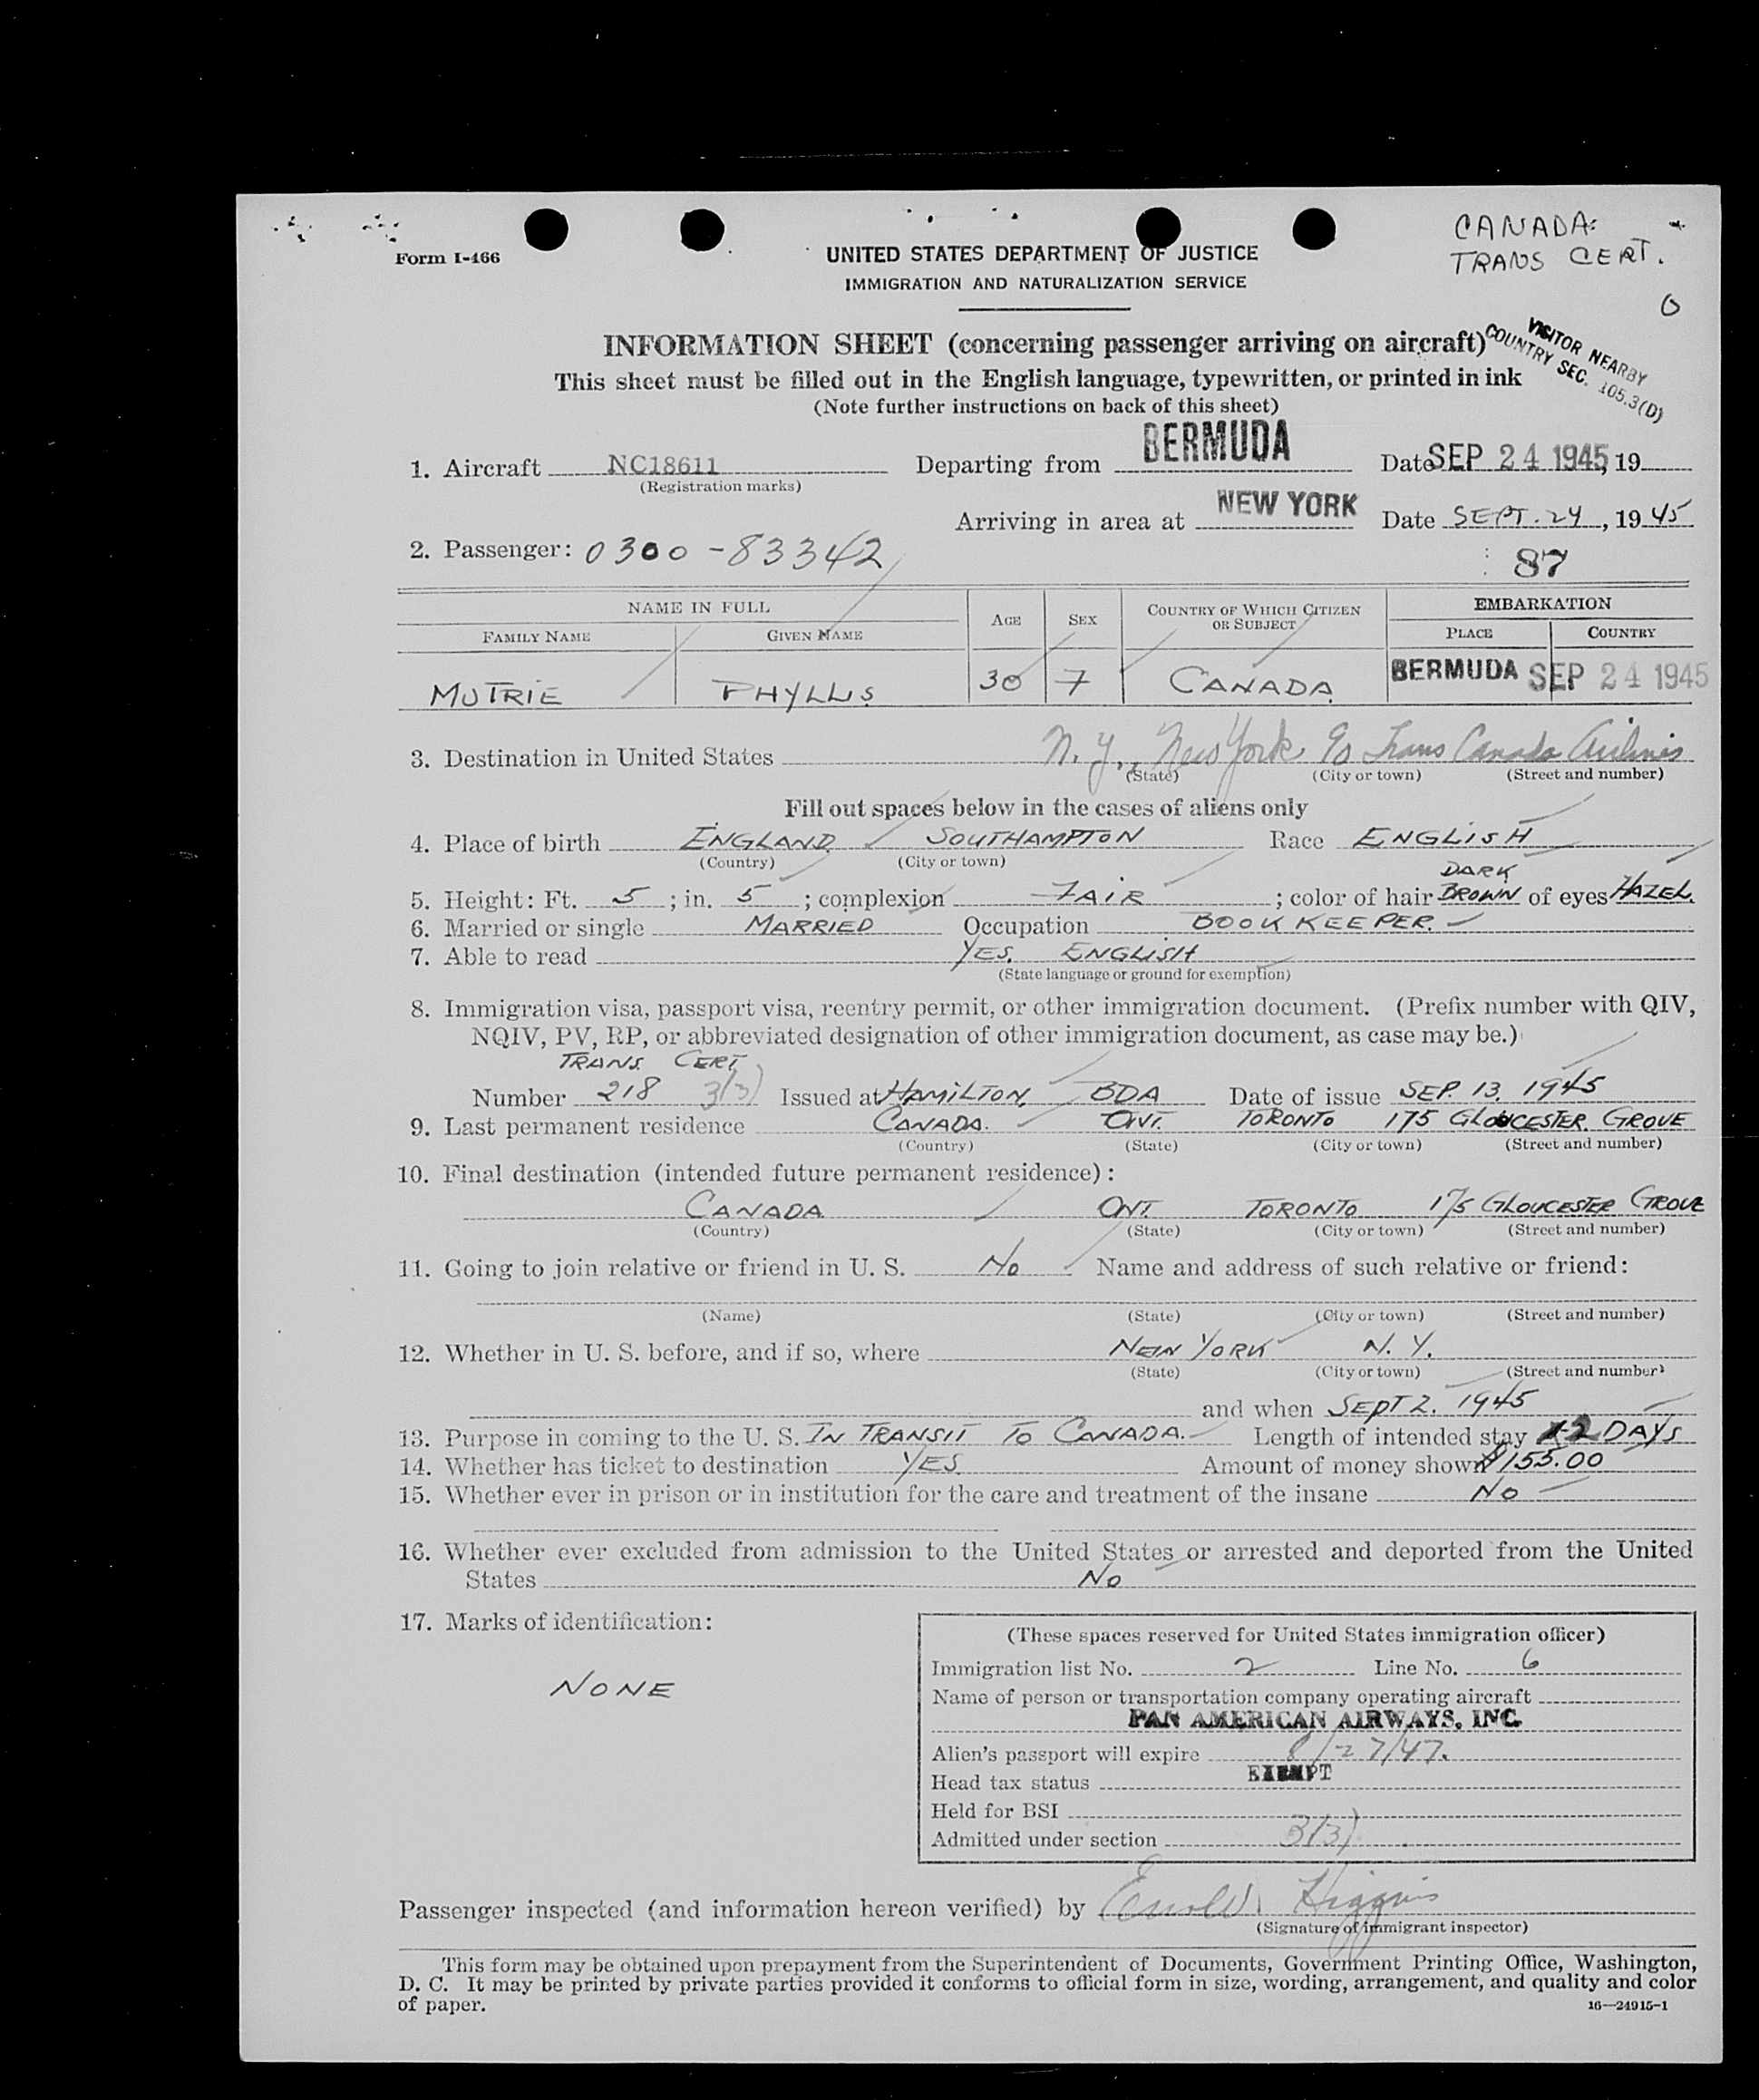 CANADA
TRANS CERT.
Form I-466
UNITED STATES DEPARTMENT OF JUSTICE
IMMIGRATION AND NATURALIZATION SERVICE
INFORMATION SHEET (concerning passenger arriving on aircraft)
VISITOR NEARBY
COUNTRY SEC. 105.3(D)
This sheet must be filled out in the English language, typewritten, or printed in ink
(Note further instructions on back of this sheet)
1. Aircraft NC18611 Departing from BERMUDA Date SEP 24 1945, 19
(Registration marks)
Arriving in area at NEW YORK Date SEPT. 24, 1945
2. Passenger: 0300-83342
87
NAME IN FULL AGE SEX COUNTRY OF WHICH CITIZEN OR SUBJECT EMBARKATION
FAMILY NAME GIVEN NAME PLACE COUNTRY
MUTRIE PHYLLIS 30 F CANADA BERMUDA SEP 24 1945
3. Destination in United States N.Y., New York c/o Trans Canada Airlines
(State) (City or town) (Street and number)
Fill out spaces below in the cases of aliens only
4. Place of birth ENGLAND SOUTHAMPTON Race ENGLISH
(Country) (City or town)
5. Height: Ft. 5; in. 5; complexion FAIR; color of hair DARK BROWN of eyes HAZEL
6. Married or single MARRIED Occupation BOOKKEEPER.
7. Able to read YES. ENGLISH
(State language or ground for exemption)
8. Immigration visa, passport visa, reentry permit, or other immigration document. (Prefix number with QIV,
NQIV, PV, RP, or abbreviated designation of other immigration document, as case may be.)
TRANS. CERT.
Number 218 3(3) Issued at HAMILTON, BDA Date of issue SEP. 13, 1945
9. Last permanent residence CANADA. ONT. TORONTO 175 GLOUCESTER. GROVE
(Country) (State) (City or town) (Street and number)
10. Final destination (intended future permanent residence):
CANADA ONT. TORONTO 175 GLOUCESTER GROVE
(Country) (State) (City or town) (Street and number)
11. Going to join relative or friend in U. S. No Name and address of such relative or friend:
(Name) (State) (City or town) (Street and number)
12. Whether in U. S. before, and if so, where NEW YORK N. Y.
(State) (City or town) (Street and number)
and when SEPT 2. 1945
13. Purpose in coming to the U. S. IN TRANSIT TO CANADA. Length of intended stay 2 DAYS
14. Whether has ticket to destination YES. Amount of money shown $155.00
15. Whether ever in prison or in institution for the care and treatment of the insane No
16. Whether ever excluded from admission to the United States or arrested and deported from the United
States No
17. Marks of identification:
NONE
(These spaces reserved for United States immigration officer)
Immigration list No. 2 Line No. 6
Name of person or transportation company operating aircraft
PAN AMERICAN AIRWAYS, INC.
Alien's passport will expire 8/27/47.
Head tax status EXEMPT
Held for BSI
Admitted under section 3(3)
Passenger inspected (and information hereon verified) by Higgins
(Signature of immigrant inspector)
This form may be obtained upon prepayment from the Superintendent of Documents, Government Printing Office, Washington,
D. C. It may be printed by private parties provided it conforms to official form in size, wording, arrangement, and quality and color
of paper.
16—24915-1